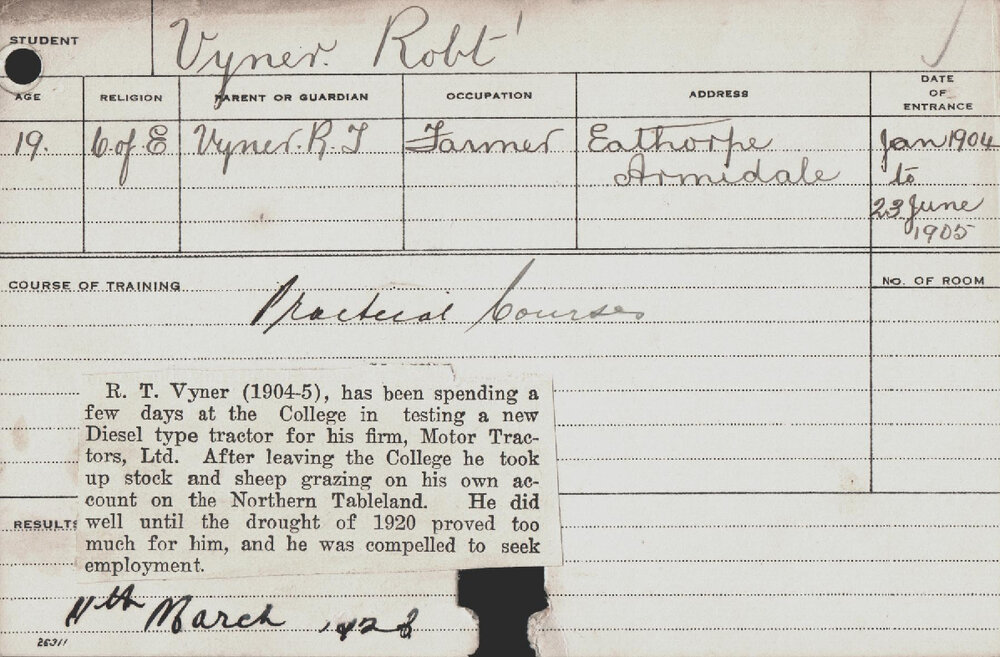 STUDENT
Vyner. Robt
AGE RELIGION PARENT OR GUARDIAN OCCUPATION ADDRESS DATE OF ENTRANCE
19. C of E Vyner. R. T Farmer Eathorpe Jan 1904
Armidale to
23 June
1905
COURSE OF TRAINING NO. OF ROOM
Practical Courses
R. T. Vyner (1904-5), has been spending a
few days at the College in testing a new
Diesel type tractor for his firm, Motor Trac-
tors, Ltd. After leaving the College he took
up stock and sheep grazing on his own ac-
count on the Northern Tableland. He did
well until the drought of 1920 proved too
much for him, and he was compelled to seek
employment.
RESULTS
11th March 1928
26311